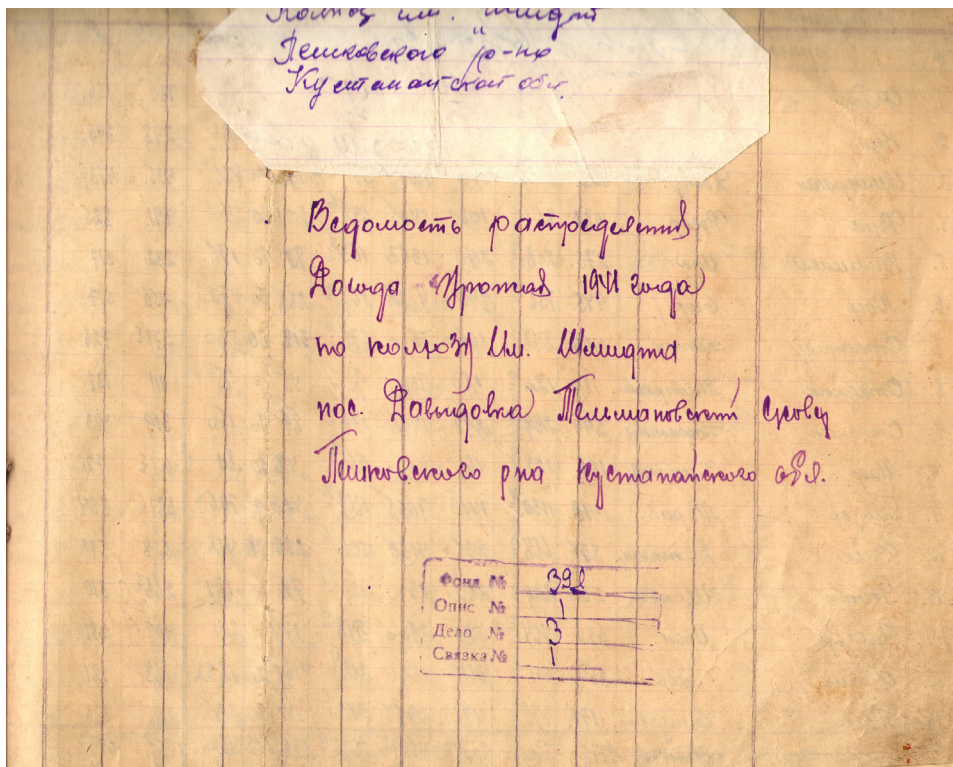 Колхоз им. Шмидт
Пешковского р-на
Кустанайской обл.
Ведомость распределения
Дохода Урожая 1941 года
по колхозу Им. Шмидта
пос. Давыдовка Тельмановский с/совет
Пешковского рна Кустанайского обл.
Фонд № 392
Опис № 1
Дело № 3
Связка № 1